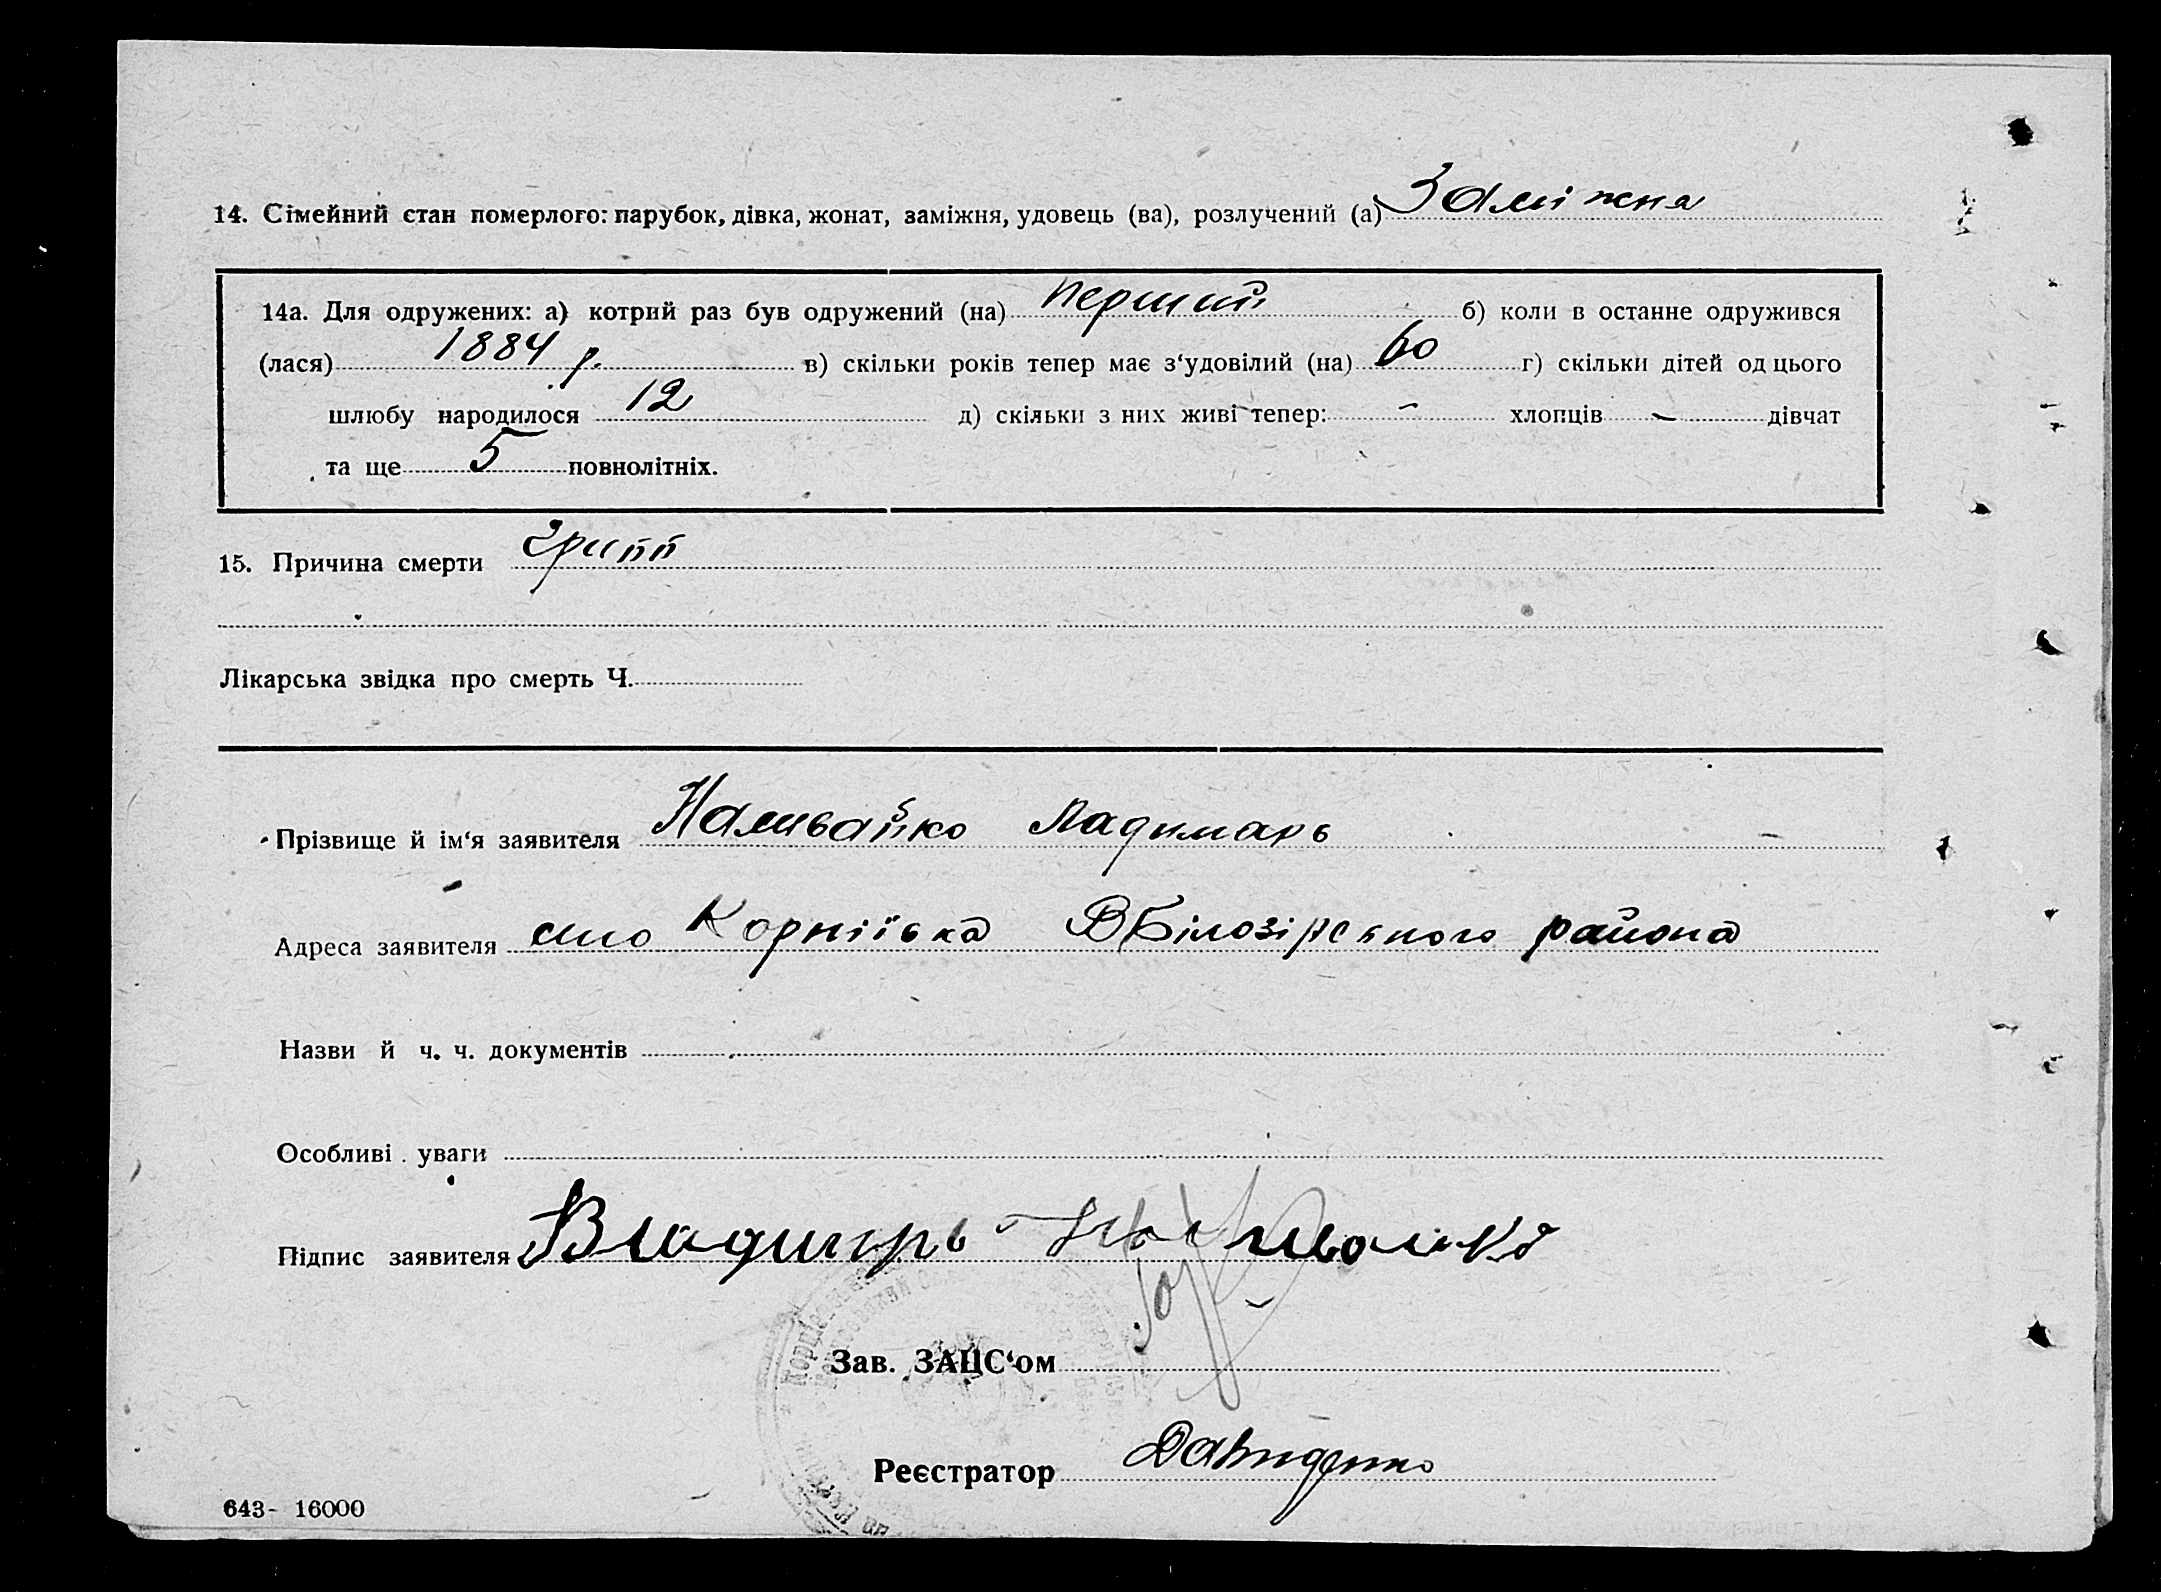 14. Сімейний стан померлого: парубок, дівка, жонат, заміжня, удовець (ва), розлучений (а) Заміжня
14а. Для одружених: а) котрий раз був одружений (на) перший б) коли в останне одружився
(лася) 1884 р. в) скільки років тепер має з‘удовілий (на) 60 г) скільки дітей од цього
шлюбу народилося 12 д) скільки з них живі тепер: - хлопців - дівчат
та ще 5 повнолітніх.
15. Причина смерти грипп
Лікарська звідка про смерть Ч.
Прізвище й ім‘я заявителя Наливайко Ладимарь
Адреса заявителя село Корніївка ВБілозірського района
Назви й ч. ч. документів
Особливі уваги
Підпис заявителя Владимрь
Зав. ЗАЦС‘ом
Реєстратор Давиденко
643- 16000